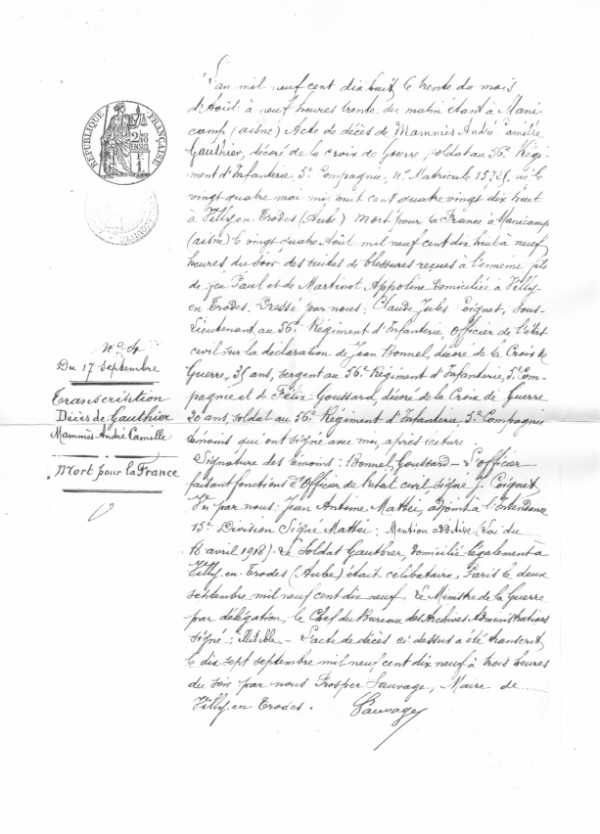 RÉPUBLIQUE FRANÇAISE
2/10 EN SUS
1 F
L'an mil neuf cent dix huit, le trente du mois
d'Août à neuf heures trente du matin étant à Mani
camp (aisne) Acte de décès de Mammès André Camille
Gauthier, décoré de la croix de Guerre, soldat au 56e Régi
ment d'Infanterie, 5e Compagnie, né le
vingt quatre mai mil huit cent quatre vingt dix huit
à Villy en Trodes (Aube) Mort pour la France à Manicamp
(aisne) le vingt quatre Août mil neuf cent dix huit à neuf
heures du soir des suites de blessures reçues à l'ennemi fils
de feu Paul et de Martinot Appoline domiciliée à Villy
en Trodes. Dressé par nous: Claude Jules Coignet, Sous-
Lieutenant au 56e Régiment d'Infanterie, Officier de l'état
civil sur la déclaration de Jean Bonnel, décoré de la Croix de
Guerre, 35 ans, sergent au 56e Régiment d'Infanterie, 5e Com-
pagnie et de Félix Goussard, décoré de la Croix de Guerre
20 ans, soldat au 56e Régiment d'Infanterie, 5e Compagnie
témoins qui ont signé avec moi, après lecture.
Signature des témoins: Bonnel, Goussard – L'officer
faisant fonctions d'Officier de l'état civil signé J. Coignet,
Vu par nous: Jean Antoine Mattéi, adjoint à l'Intendance
15e Division Signé Mattéi: Mention additive (Loi du
18 avril 1918) Le Soldat Gauthier domicilié légalement à
Villy en Trodes (Aube) était célibataire, Paris le deux
septembre mil neuf cent dix neuf. Le Ministre de la Guerre
par délégation, le Chef du Bureau des Archives Administratives
signé: illisible – L'acte de décès ci-dessus a été transcrit
le dix sept septembre mil neuf cent dix neuf à trois heures
du soir par nous Prosper Sauvage, Maire de
Villy en Trodes.
Sauvage
Du 17 septembre
Transcription
Décès de Gauthier
Mammès André Camille
Mort pour la France